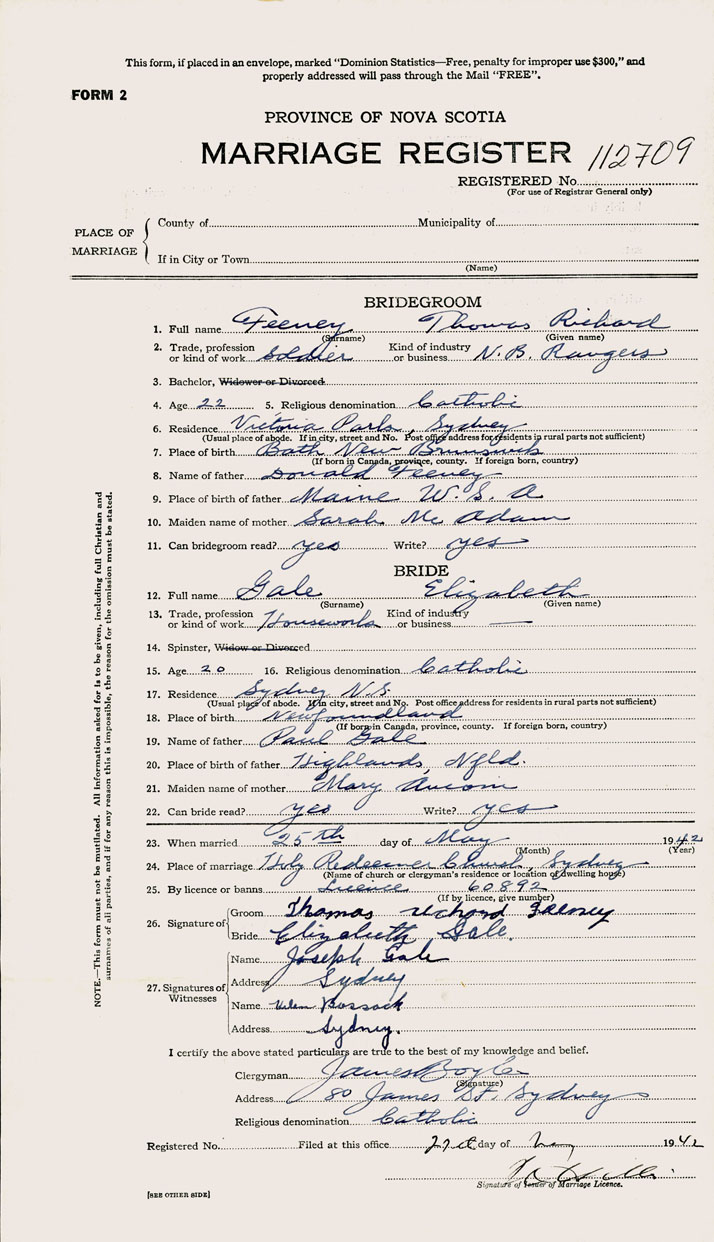 This form, if placed in an envelope, marked "Dominion Statistics—Free, penalty for improper use $300," and
properly addressed will pass through the Mail "FREE".
FORM 2
PROVINCE OF NOVA SCOTIA
MARRIAGE REGISTER 112709
REGISTERED No.
(For use of Registrar General only)
PLACE OF MARRIAGE
County of Municipality of
If in City or Town
(Name)
BRIDEGROOM
1. Full name Feeney Thomas Richard
(Surname) (Given name)
2. Trade, profession or kind of work Soldier Kind of industry or business N. B. Rangers
3. Bachelor, Widower or Divorced
4. Age 22 5. Religious denomination Catholic
6. Residence Victoria Park, Sydney
(Usual place of abode. If in city, street and No. Post office address for residents in rural parts not sufficient)
7. Place of birth Bath New Brunswick
(If born in Canada, province, county. If foreign born, country)
8. Name of father Donald Feeney
9. Place of birth of father Maine U. S. A
10. Maiden name of mother Sarah Mc Adam
11. Can bridegroom read? yes Write? yes
BRIDE
12. Full name Gale Elizabeth
(Surname) (Given name)
13. Trade, profession or kind of work Housework Kind of industry or business —
14. Spinster, Widow or Divorced
15. Age 20 16. Religious denomination Catholic
17. Residence Sydney N.S.
(Usual place of abode. If in city, street and No. Post office address for residents in rural parts not sufficient)
18. Place of birth Newfoundland
(If born in Canada, province, county. If foreign born, country)
19. Name of father Paul Gale
20. Place of birth of father Highlands, Nfld.
21. Maiden name of mother Mary
22. Can bride read? yes Write? yes
23. When married 25th day of May 1942
(Month) (Year)
24. Place of marriage Holy Redeemer Church, Sydney
(Name of church or clergyman's residence or location of dwelling house)
25. By licence or banns Licence 60892
(If by licence, give number)
26. Signature of
Groom Thomas Richard Feeney
Bride Elizabeth Gale.
27. Signatures of Witnesses
Name Joseph Gale
Address Sydney
Name Helen
Address Sydney.
I certify the above stated particulars are true to the best of my knowledge and belief.
Clergyman James Boyle
(Signature)
Address 80 James St. Sydney
Religious denomination Catholic
Registered No. Filed at this office day of May 1942
Signature of Issuer of Marriage Licence.
[SEE OTHER SIDE]
NOTE.—This form must not be mutilated. All information asked for is to be given, including full Christian and
surnames of all parties, and if for any reason this is impossible, the reason for the omission must be stated.